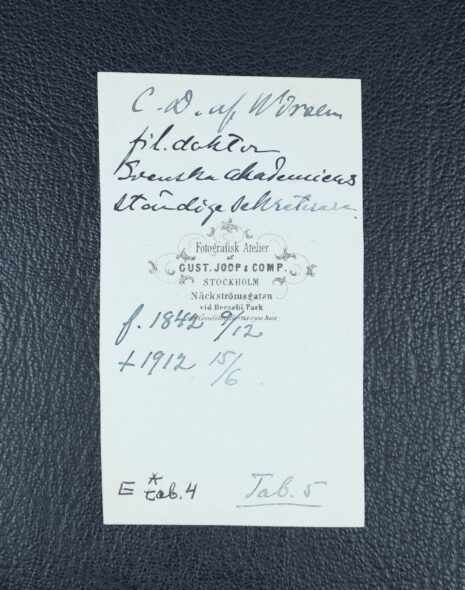 C. D. af Wirsén
fil. doktor
Svenska akademiens
ständige sekreterare.
Fotografisk Atelier
af
GUST. JOOP & COMP.
STOCKHOLM
Näckströmsgatan
vid Berzelii Park
f. 1842 9/12
+ 1912 15/6
E tab. 4
Tab. 5